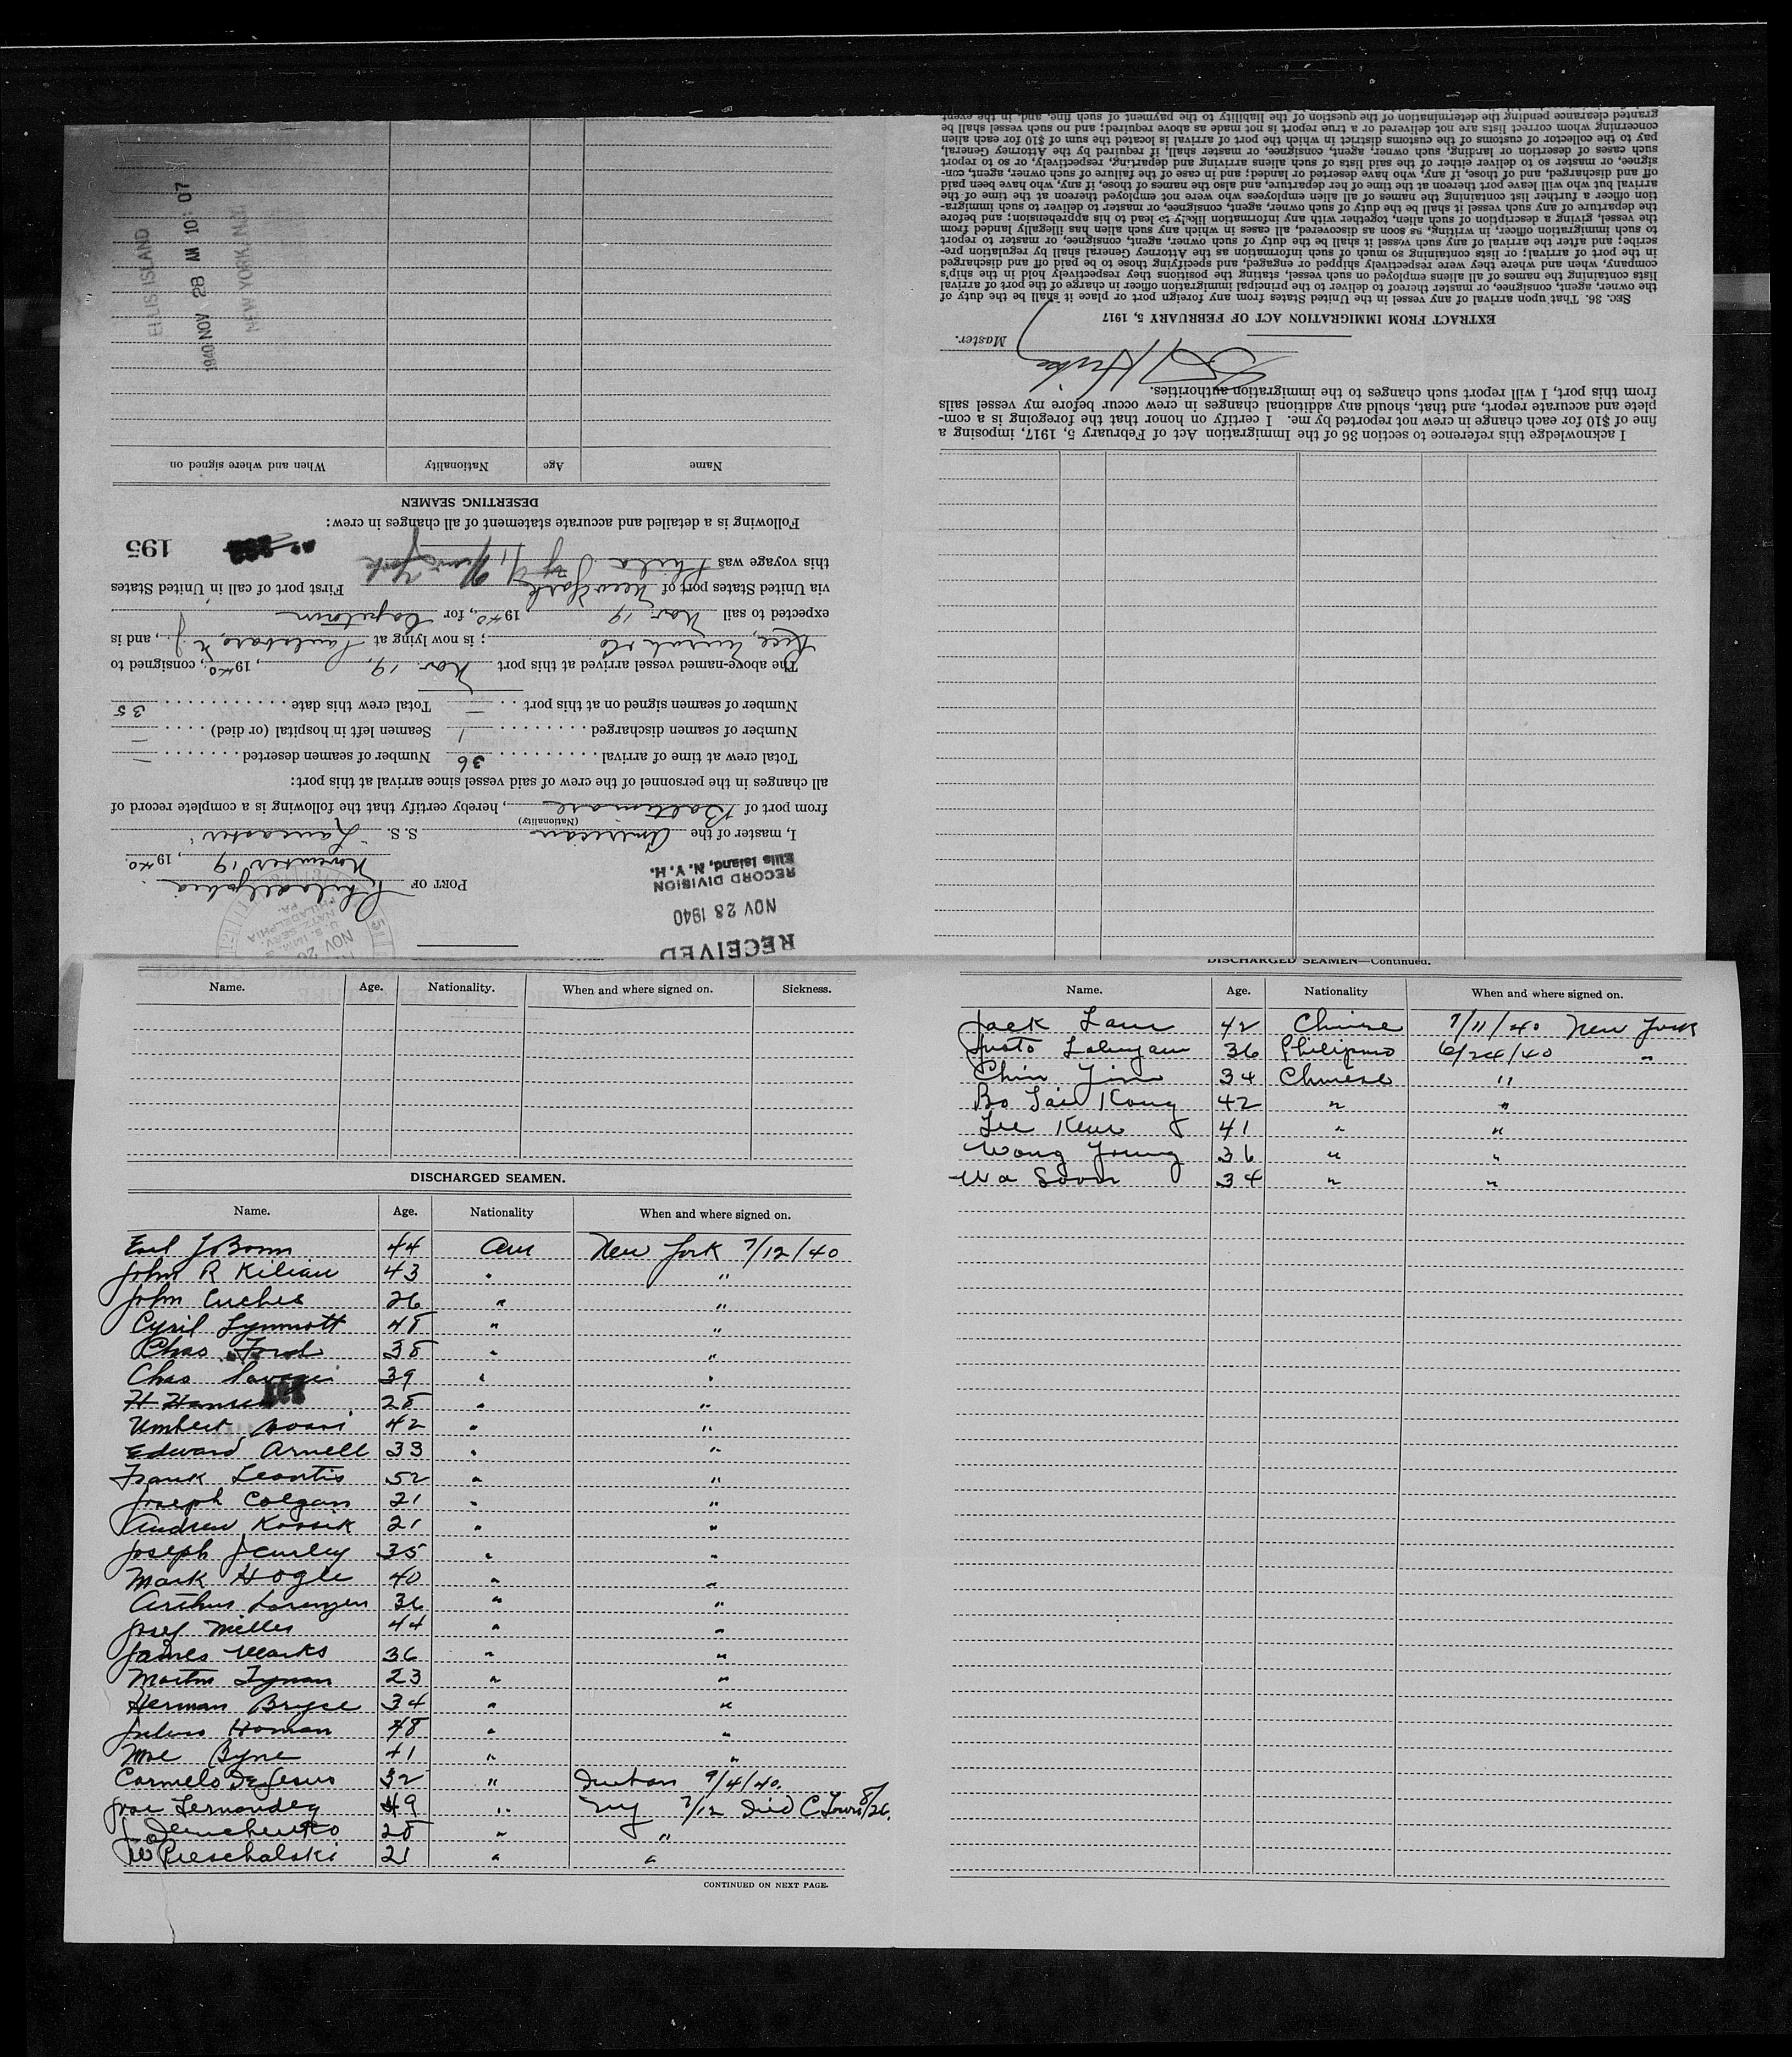 RECEIVED
NOV 28 1940
RECORD DIVISION
Ellis Island, N. Y. H.
PORT OF Philadelphia
November 19, 1940.
I, master of the American S. S. "Lancaster"
(Nationality)
from port of Baltimore, hereby certify that the following is a complete record of
all changes in the personnel of the crew of said vessel since arrival at this port:
Total crew at time of arrival 36 Number of seamen deserted —
Number of seamen discharged 1 Seamen left in hospital (or died) —
Number of seamen signed on at this port — Total crew this date 35
The above-named vessel arrived at this port Nov. 19, 1940, consigned to
; is now lying at Paulsboro, N J, and is
expected to sail Nov. 19, 1940, for Capetown
via United States port of New York First port of call in United States
this voyage was New York
195
Following is a detailed and accurate statement of all changes in crew:
DESERTING SEAMEN
Name Age Nationality When and where signed on
ELLIS ISLAND
1940 NOV 28 AM 10: 07
NEW YORK
I acknowledge this reference to section 36 of the Immigration Act of February 5, 1917, imposing a
fine of $10 for each change in crew not reported by me. I certify on honor that the foregoing is a com-
plete and accurate report, and that, should any additional changes in crew occur before my vessel sails
from this port, I will report such changes to the immigration authorities.
Master.
EXTRACT FROM IMMIGRATION ACT OF FEBRUARY 5, 1917
SEC. 36. That upon arrival of any vessel in the United States from any foreign port or place it shall be the duty of
the owner, agent, consignee, or master thereof to deliver to the principal immigration officer in charge of the port of arrival
lists containing the names of all aliens employed on such vessel, stating the positions they respectively hold in the ship's
company, when and where they were respectively shipped or engaged, and specifying those to be paid off and discharged
in the port of arrival; or lists containing so much of such information as the Attorney General shall by regulation pre-
scribe; and after the arrival of any such vessel it shall be the duty of such owner, agent, consignee, or master to report
to such immigration officer, in writing, as soon as discovered, all cases in which any such alien has illegally landed from
the vessel, giving a description of such alien, together with any information likely to lead to his apprehension; and before
the departure of any such vessel it shall be the duty of such owner, agent, consignee, or master to deliver to such immigra-
tion officer a further list containing the names of all alien employees who were not employed thereon at the time of the
arrival but who will leave port thereon at the time of her departure, and also the names of those, if any, who have been paid
off and discharged, and of those, if any, who have deserted or landed; and in case of the failure of such owner, agent, con-
signee, or master so to deliver either of the said lists of such aliens arriving and departing, respectively, or so to report
such cases of desertion or landing, such owner, agent, consignee, or master shall, if required by the Attorney General,
pay to the collector of customs of the customs district in which the port of arrival is located the sum of $10 for each alien
concerning whom correct lists are not delivered or a true report is not made as above required; and no such vessel shall be
granted clearance pending the determination of the question of the liability to the payment of such fine, and, in the event
Name. Age. Nationality. When and where signed on. Sickness.
DISCHARGED SEAMEN.
Name. Age. Nationality When and where signed on.
Earl J Bonn 44 Am New York 7/12/40
John R Kilian 43 " "
John Cuches 26 " "
Cyril Lynnott 48 " "
Chas Ford 38 " "
Chas 39 " "
H Hansen 28 " "
Umbert 42 " "
Edward Arnell 33 " "
Frank Leontis 52 " "
Joseph Colgan 21 " "
Andrew Kossik 21 " "
Joseph J Curley 35 " "
Mark Hogle 40 " "
Arthur Lorenzen 36 " "
Josef Miller 44 " "
James Marks 36 " "
Martin Tynan 23 " "
Herman Bryce 34 " "
Julius Homan 48 " "
Moe Byne 41 " "
Carmelo DeJesus 32 " Durban 9/4/40.
Jose Fernandez 49 " NY 7/12 Died C Town 8/26.
J Demchenko 28 " "
W Pieschalski 21 " "
CONTINUED ON NEXT PAGE.
DISCHARGED SEAMEN—Continued.
Name. Age. Nationality When and where signed on.
Jack Lam 42 Chinese 7/11/40 New York
Justo 36 Philipino 6/24/40 "
Chin Jim 34 Chinese "
Bo Tai Kong 42 " "
Lee Keur 41 " "
Wong Young 36 " "
Wa Soon 34 " "